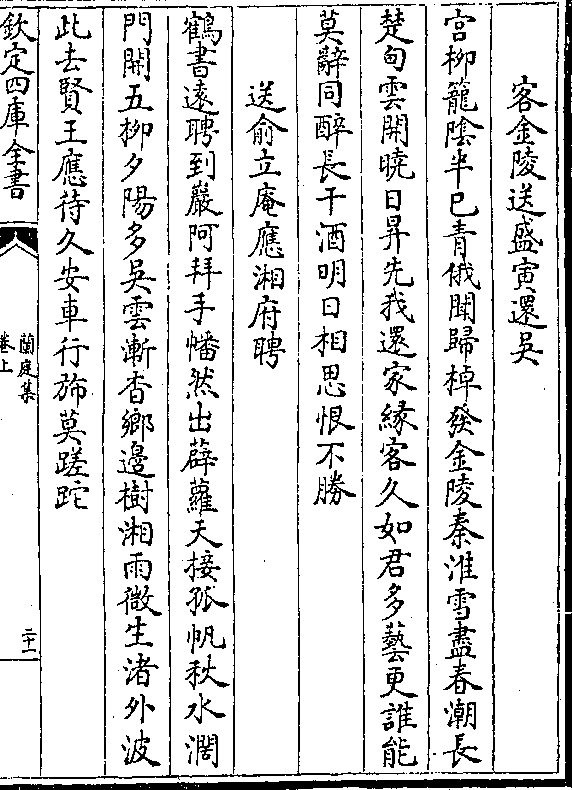 客金陵送盛寅還吳
宮柳籠陰半已青俄聞歸棹發金陵秦淮雪盡春潮長
楚甸雲開曉日昇先我還家緣客久如君多藝更誰能
莫辭同醉長干酒明日相思恨不勝
送俞立庵應湘府聘
鶴書遠聘到巖阿拜手幡然出薜蘿天接孤帆秋水濶
門開五柳夕陽多吳雲漸杳鄉邊樹湘雨微生渚外波
此去賢王應待久安車行斾莫蹉跎
欽定四庫全書
蘭庭集
卷上
二十一